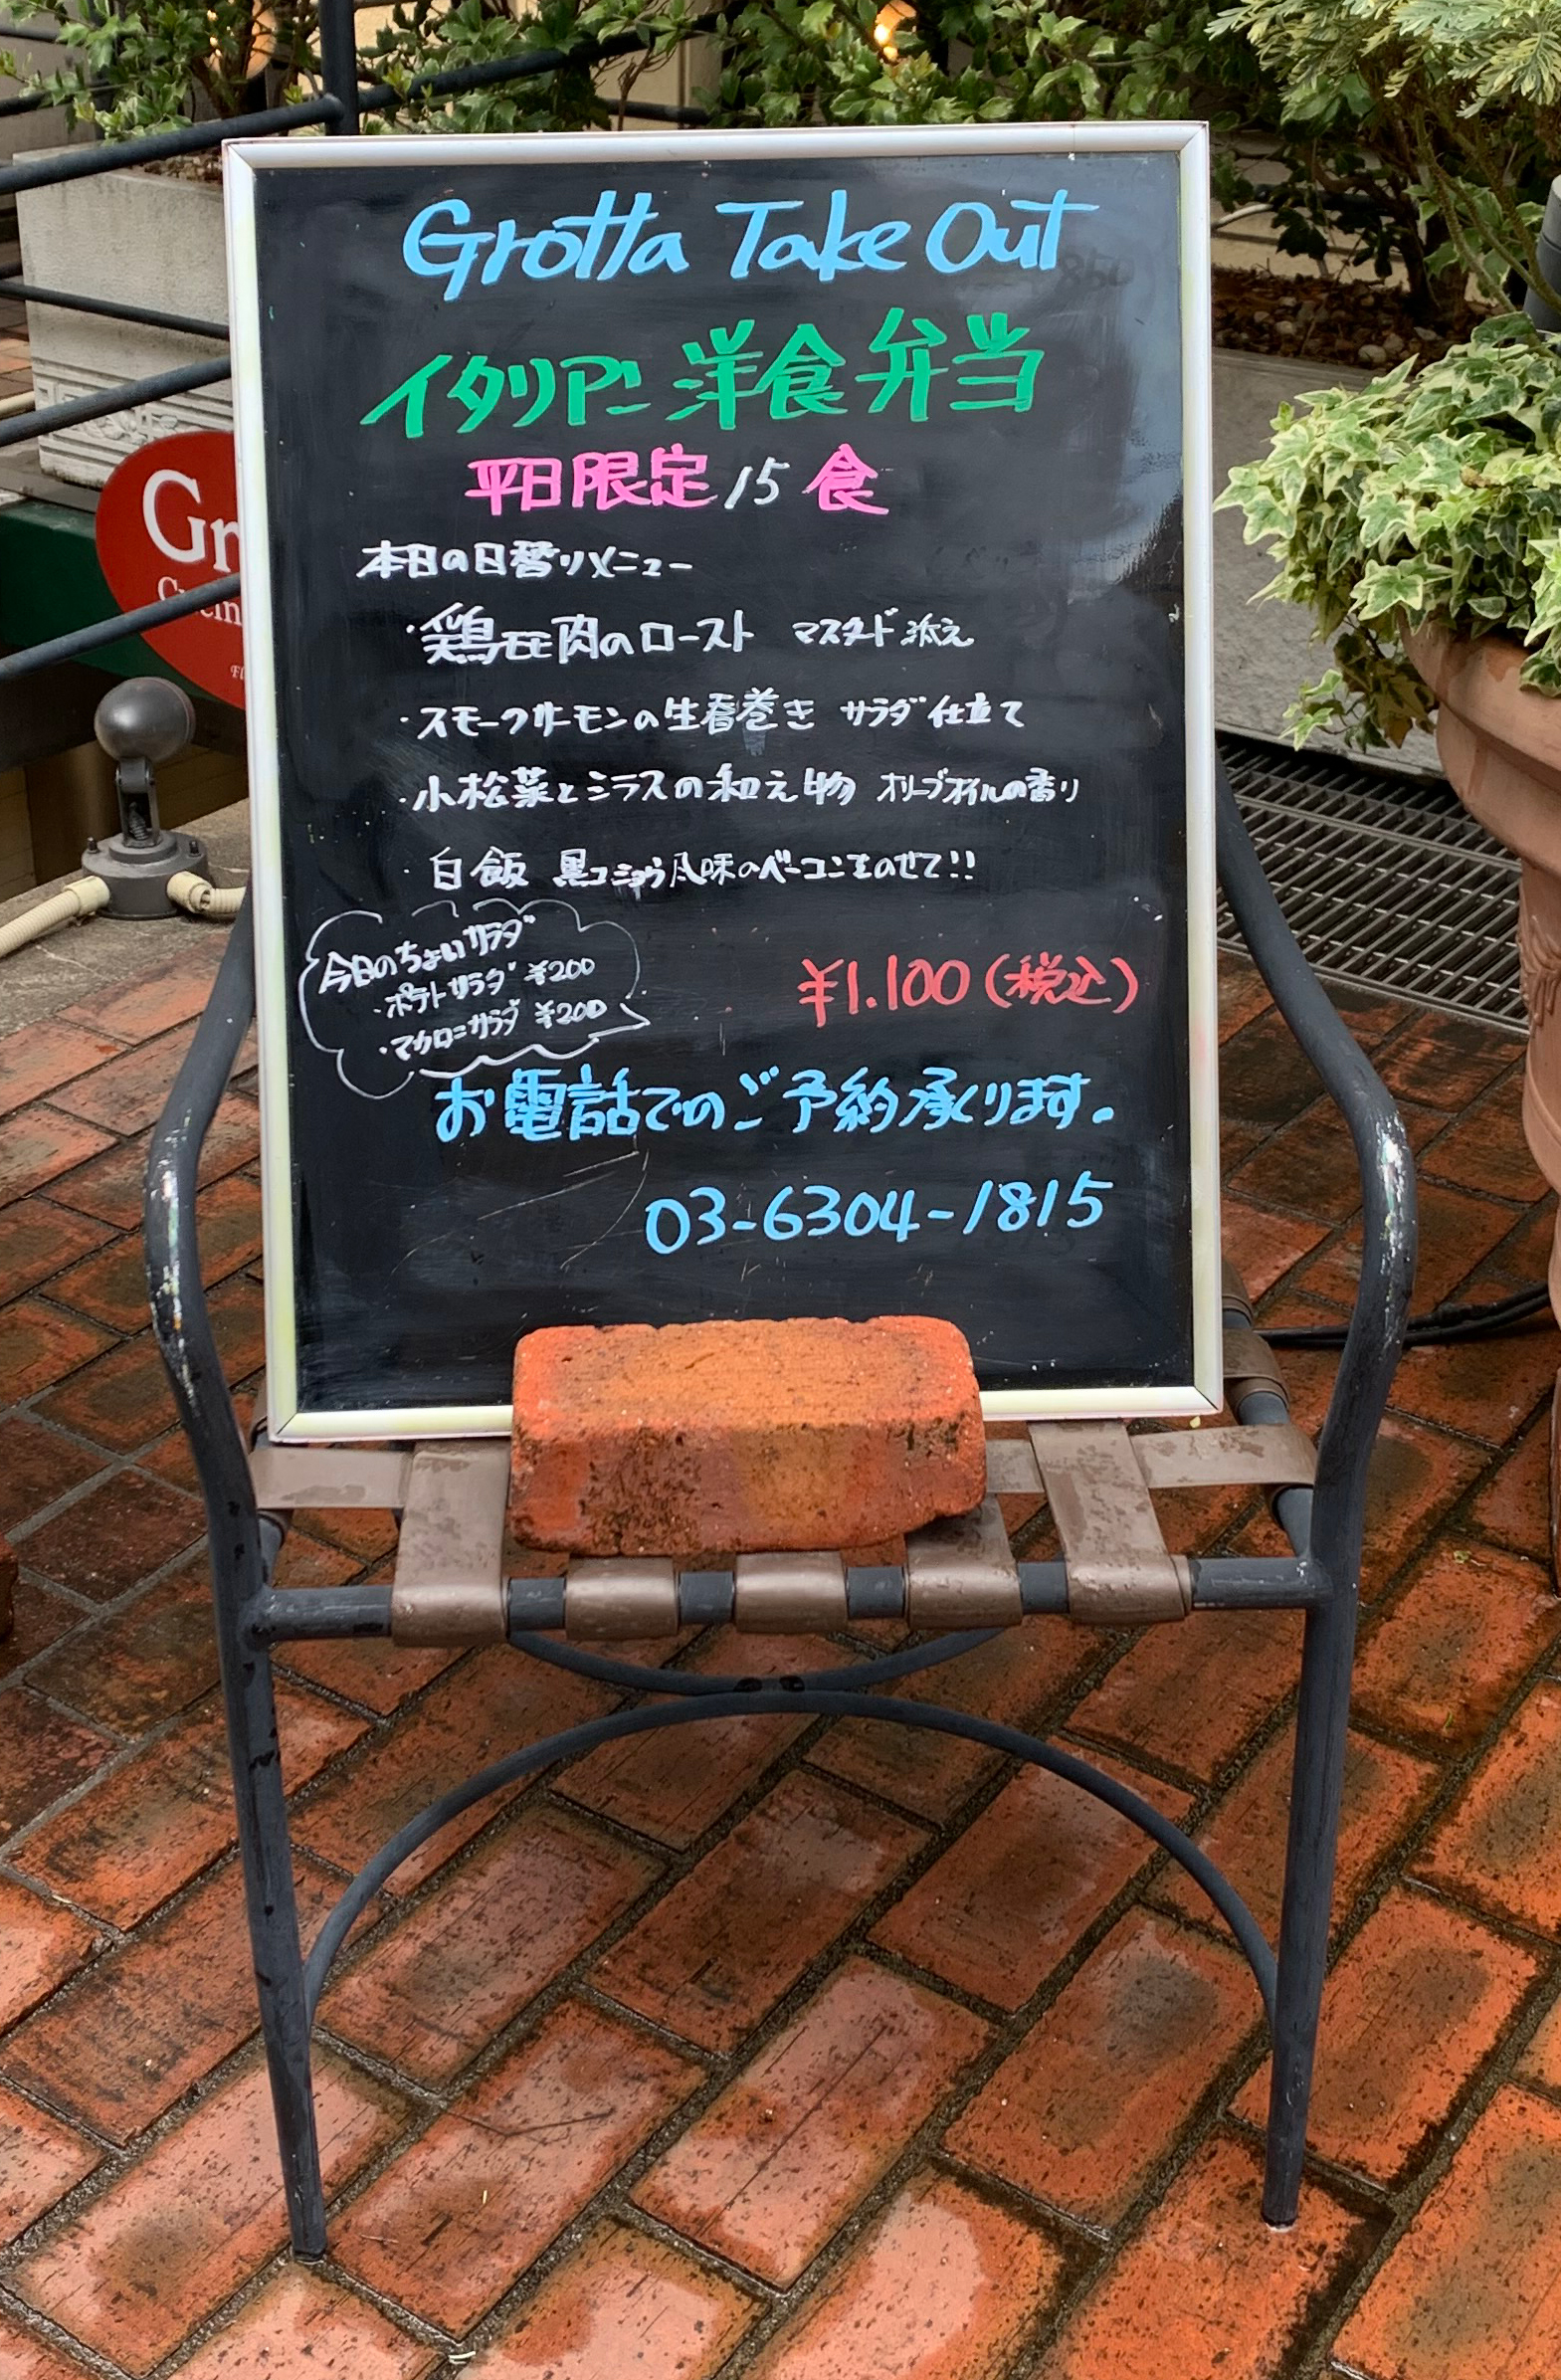 Grotta Take Out
イタリアン洋食弁当
平日限定15食
本日の日替りメニュー
・鶏モモ肉のロースト マスタード添え
・スモークサーモンの生春巻き サラダ仕立て
・小松菜とシラスの和え物 オリーブオイルの香り
・白飯 黒コショウ風味のベーコンをのせて!!
今日のちょいサラダ
・ポテトサラダ ¥200
・マカロニサラダ ¥200
¥1.100(税込)
お電話でのご予約承ります。
03-6304-1815
Gr